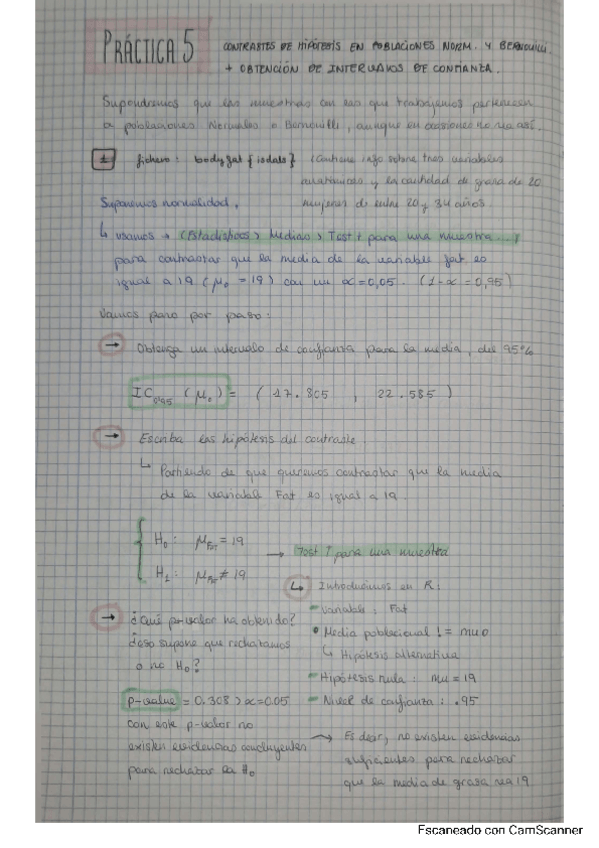 PRÁCTICA 5
CONTRASTES DE HIPÓTESIS EN POBLACIONES NORM. Y BERNOUILLI
+ OBTENCIÓN DE INTERVALOS DE CONFIANZA.
Supondremos que las muestras con las que trabajemos pertenecen
a poblaciones Normales o Bernouilli, aunque en ocasiones no sea así.
1 fichero: bodyfat {isdals} (Contiene info sobre tres variables
anatómicas y la cantidad de grasa de 20
mujeres de entre 20 y 34 años.
Suponemos normalidad,
↳ usamos → (Estadísticos > Medias > Test t para una muestra...)
para contrastar que la media de la variable fat es
igual a 19 (μ₀ = 19) con un α=0,05. (1-α = 0,95)
Vamos paso por paso:
→ Obtenga un intervalo de confianza para la media, del 95%
IC₀'₉₅ (μ₀) = (17.805 , 22.585)
→ Escriba las hipótesis del contraste.
↳ Partiendo de que queremos contrastar que la media
de la variable Fat es igual a 19.
H₀: μFat = 19
→ Test T para una muestra
H₁: μFat ≠ 19
↳ Introducimos en R:
- Variable: Fat
• Media poblacional != mu0
↳ Hipótesis alternativa
- Hipótesis nula: mu = 19
- Nivel de confianza: .95
→ ¿Qué p-valor ha obtenido?
¿Eso supone que rechazamos
o no H₀?
p-value = 0.308 > α=0.05
con este p-valor no
existen evidencias concluyentes
para rechazar la H₀
→ Es decir, no existen evidencias
suficientes para rechazar
que la media de grasa sea 19.
Escaneado con CamScanner